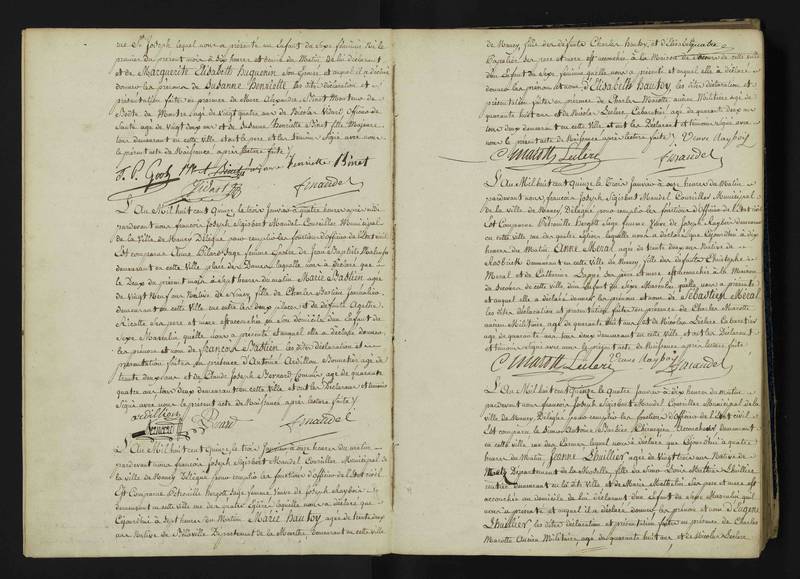 rue St Joseph lequel nous a présenté un Enfant du Sexe féminin né le
premier du présent mois à dix heures et demie du Matin, de lui déclarant
et de Marguerite Elisabeth Huguenin son Epouse et auquel il a déclaré
donner les prénoms de Susanne Henriette, les dites déclaration et
présentation faites en présence de Alexandre Binet Monteur de
Boëtes de Montre âgé de vingt quatre ans de Nicolas Vidart Officier de
Santé âgé de vingt deux ans et de Susanne Henriette Binet fille Majeure
tous demeurant en cette ville et ont les père et témoins Signé avec nous
le présent acte de Naissance après lecture faite /
Henriette Binet
Mandel
L'An Mil huit cent Quinze, le trois Janvier à quatre heures après midi
pardevant nous françois Joseph Sigisbert Mandel Conseiller Municipal
de la Ville de Nancy Délégué pour remplir les fonctions d'officier de l'Etat civil
Est comparue Anne femme de Jean Baptiste
demeurant en cette Ville place des Dames laquelle nous a déclaré que
le Deux du présent mois à Sept heures du matin Marie Bastien agée
de vingt Neuf ans Native de Nancy fille de Charles Bastien Journalier
demeurant en cette Ville rue entre les deux places et de défunte Agathe
Ricotte Ses père et mère est accouchée en son domicile d'un Enfant du
Sexe Masculin quelle nous a présenté et auquel elle a déclaré donner
les prénoms et nom de françois Bastien les dites déclaration et
présentation faites en présence d'Antoine Ardillion Bonnetier âgé de
trente deux ans et de Claude Joseph Bernard Commis âgé de quarante
quatre ans tous deux demeurant en cette ville et ont les Déclarant et témoins
Signé avec nous le présent acte de Naissance après lecture faite /
ardillion
Bernard
Mandel
L'An Mil huit cent Quinze le trois Janvier à onze heures du matin
pardevant nous françois Joseph Sigisbert Mandel Conseiller Municipal de
la Ville de Nancy Délégué pour remplir les fonctions d'officier de l'Etat civil
Est Comparue Petronille Sage femme Veuve de Joseph Raybois
demeurant en cette ville rue des quatre Eglises laquelle nous a déclaré que
Cejourd'hui à Sept heures du Matin Marie Hautoy agée de trente deux
ans Native de Département de la Meurthe demeurant en cette Ville
de Nancy, fille des défunts Charles hautoy, et d'Elisabeth
Ses père et mère est accouchée à la Maison de Secours de cette ville
d'un Enfant du Sexe féminin quelle nous a présenté et auquel elle a déclaré
donner les prénom et nom d'Elisabeth Hautoy les dites déclaration et
présentation faites en présence de Charles Marotte ancien Militaire agé de
quarante huit ans et de Nicolas Leclere Cabaretier agé de quarante deux ans
tous deux demeurant en cette Ville et ont les Déclarant et témoins Signé avec
nous le présent acte de Naissance après lecture faite / Veuve Raybois
C Marotte Leclere Mandel
L'An Mil huit cent Quinze le Trois Janvier à onze heures du Matin
pardevant nous françois Joseph Sigisbert Mandel Conseiller Municipal
de la Ville de Nancy Délégué pour remplir les fonctions d'Officier de l'Etat civil
Est Comparue Petronille Sage femme Veuve de Joseph Raybois demeurant
en cette ville rue des quatre Eglises laquelle nous a déclaré que Cejourd'hui à dix
heures du Matin Anne Meral agée de trente deux ans Native de
demeurant en cette Ville de Nancy, fille des défunts Christophe
Meral et de Catherine Ses père et mère est accouchée à la Maison
de Secours de cette ville d'un Enfant du Sexe Masculin quelle nous a présenté
et auquel elle a déclaré donner les prénom et nom de Sébastien Meral
les dites déclaration et présentation faites en présence de Charles Marotte
ancien Militaire, agé de quarante huit ans et de Nicolas Leclere Cabaretier
agé de quarante deux ans tous deux demeurant en cette ville et ont les Déclarant
et témoins Signé avec nous le présent acte de Naissance après lecture faite
C Marotte Leclere Veuve Raybois Mandel
L'An Mil huit cent Quinze le quatre Janvier à dix heures du matin
pardevant nous françois Joseph Sigisbert Mandel Conseiller Municipal de la
Ville de Nancy, Délégué pour remplir les fonctions d'officier de l'Etat civil
Est comparu le Sieur Antoine Chirurgien Accoucheur demeurant
en cette ville rue des Carmes lequel nous a déclaré que Cejourd'hui à quatre
heures du Matin, Jeanne Lhuillier agée de Vingt trois ans Native de
Metz Département de la Moselle, fille du Sieur Louis Mathis Lhuillier
demeurant en la dite Ville et de Marie Ses père et mère est
accouchée au domicile de lui déclarant d'un Enfant du Sexe Masculin qu'il
nous a présenté et auquel il a déclaré donner les prénom et nom d'Eugene
Lhuillier, les dites déclaration et présentation faites en présence de Charles
Marotte Ancien Militaire, agé de quarante huit ans et de Nicolas Leclere